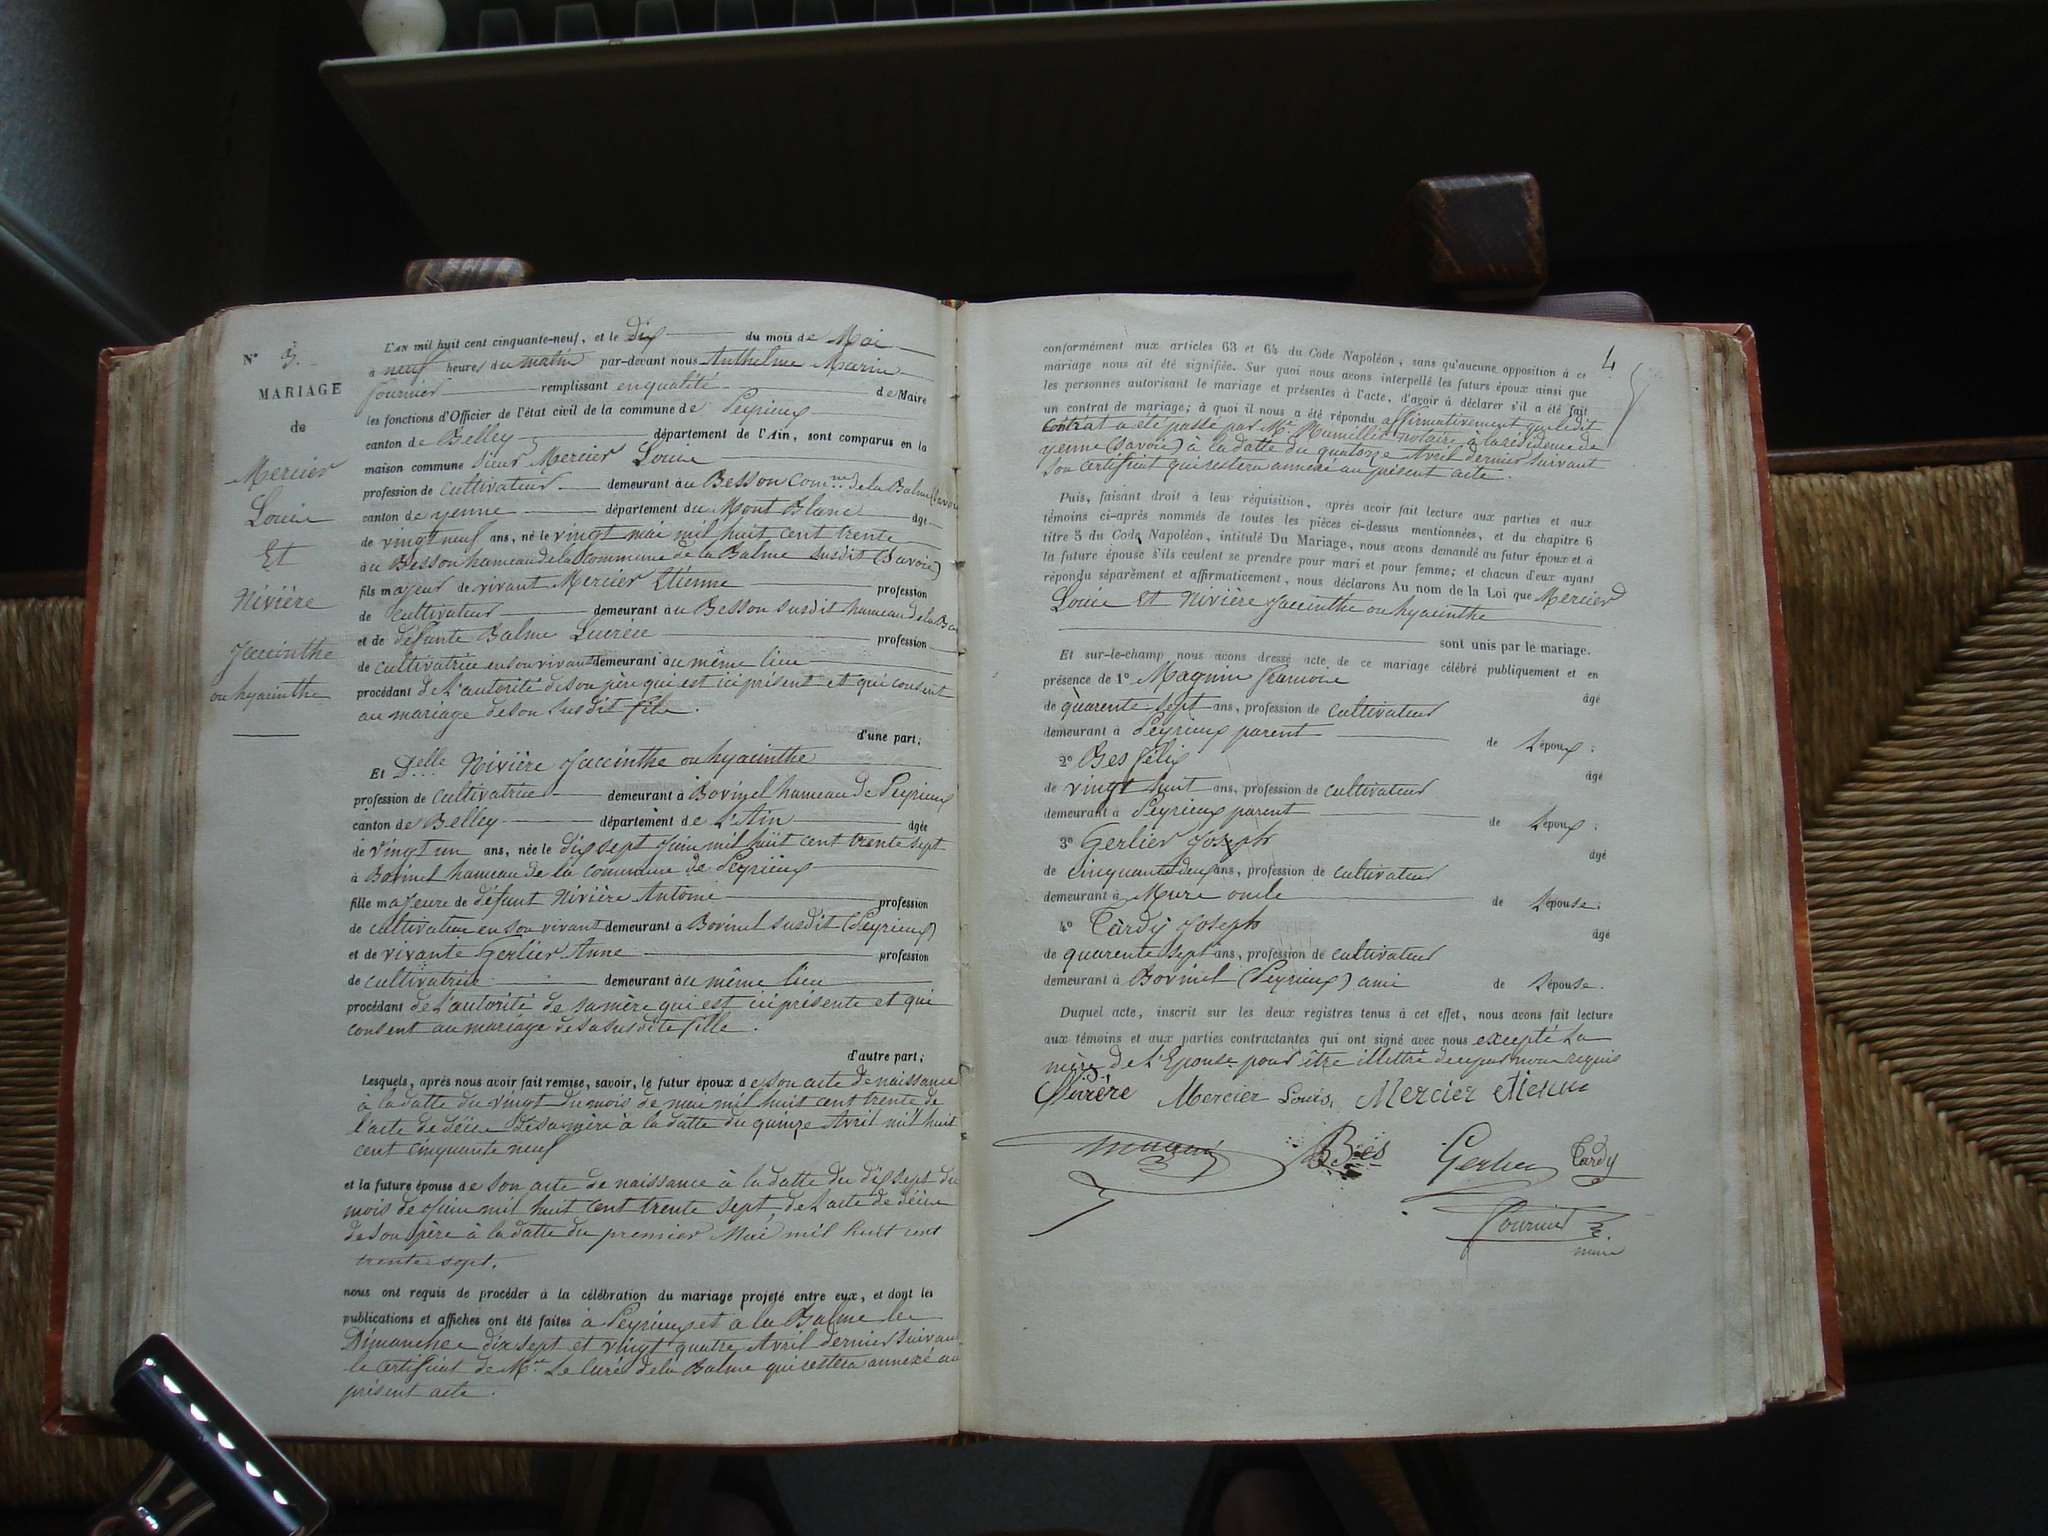 N° 3.
MARIAGE
de
Mercier
Louis
Et
Nivière
Jaccinthe
ou hyacinthe
L'AN mil huit cent cinquante-neuf, et le dix du mois de Mai
à neuf heures du matin par-devant nous Anthelme Marin
fournier remplissant en qualité de Maire
les fonctions d'Officier de l'état civil de la commune de Peyrieux
canton de Belley département de l'Ain, sont comparus en la
maison commune sieur Mercier Louis
profession de cultivateur demeurant à u Besson com.ne de la Balme (Savoie
canton de yenne département du Mont Blanc âgé
de vingt neuf ans, né le vingt mai mil huit cent trente
à u Besson hameau de la commune de la Balme susdit (Savoie)
fils majeur de vivant Mercier Etienne profession
de cultivateur demeurant à u Besson susdit hameau de la Ba
et de défunte Balme Lucrèce profession
de cultivatrice en son vivant demeurant à u même lieu
procédant de l'autorité de son père qui est ici présent et qui consent
au mariage de son susdit fils.
d'une part;
Et D.elle Nivière Jaccinthe ou hyacinthe
profession de cultivatrice demeurant à Bovinel hameau de Peyrieux
canton de Belley département de L'Ain âgée
de vingt un ans, née le dix sept Juin mil huit cent trente sept
à Bovinel hameau de la commune de Peyrieux
fille majeure de défunt Nivière Antoine profession
de cultivateur en son vivant demeurant à Bovinel susdit (Peyrieux)
et de vivante Gerlier Anne profession
de cultivatrice demeurant à u même lieu
procédant de l'autorité de sa mère qui est ici présente et qui
consent au mariage de sa susdite fille.
d'autre part;
Lesquels, après nous avoir fait remise, savoir, le futur époux d e son acte de naissance
à la datte du vingt du mois de mai mil huit cent trente de
l'acte de décès de sa mère à la datte du quinze Avril mil huit
cent cinquante neuf
et la future épouse d e son acte de naissance à la datte du dix sept du
mois de Juin mil huit cent trente sept, de l'acte de décès
de son père à la datte du premier Mai mil huit cent
trente sept.
nous ont requis de procéder à la célébration du mariage projeté entre eux, et dont les
publications et affiches ont été faites à Peyrieux et à la Balme les
Dimanches dix sept et vingt quatre Avril dernier suivant
le certificat de M.r Le Curé de la Balme qui restera annexé au
présent acte.
4
conformément aux articles 63 et 64 du Code Napoléon, sans qu'aucune opposition à ce
mariage nous ait été signifiée. Sur quoi nous avons interpellé les futurs époux ainsi que
les personnes autorisant le mariage et présentes à l'acte, d'avoir à déclarer s'il a été fait
un contrat de mariage; à quoi il nous a été répondu affirmativement que ledit
contrat a été passé par M.e notaire à la résidence de
yenne (Savoie) à la datte du quatorze Avril dernier suivant
son certificat qui restera annexé au présent acte.
Puis, faisant droit à leur réquisition, après avoir fait lecture aux parties et aux
témoins ci-après nommés de toutes les pièces ci-dessus mentionnées, et du chapitre 6
titre 5 du Code Napoléon, intitulé Du Mariage, nous avons demandé au futur époux et à
la future épouse s'ils veulent se prendre pour mari et pour femme; et chacun d'eux ayant
répondu séparément et affirmativement, nous déclarons Au nom de la Loi que Mercier
Louis Et Nivière Jaccinthe ou hyacinthe
sont unis par le mariage.
Et sur-le-champ nous avons dressé acte de ce mariage célébré publiquement et en
présence de 1° Magnin françois
âgé
de quarente sept ans, profession de cultivateur
demeurant à Peyrieux parent de l'époux;
2° Bes félix
âgé
de vingt huit ans, profession de cultivateur
demeurant à Peyrieux parent de l'époux;
3° Gerlier Joseph
âgé
de cinquante deux ans, profession de cultivateur
demeurant à Mure oncle de l'épouse;
4° Tardy Joseph
âgé
de quarente sept ans, profession de cultivateur
demeurant à Bovinel (Peyrieux) ami de l'épouse.
Duquel acte, inscrit sur les deux registres tenus à cet effet, nous avons fait lecture
aux témoins et aux parties contractantes qui ont signé avec nous excepté la
mère de L'Epouse pour être illettré de ce par nous requis
Nivière Mercier Louis, Mercier etienne
magnin Bès Gerlier Tardy
Fournier
maire